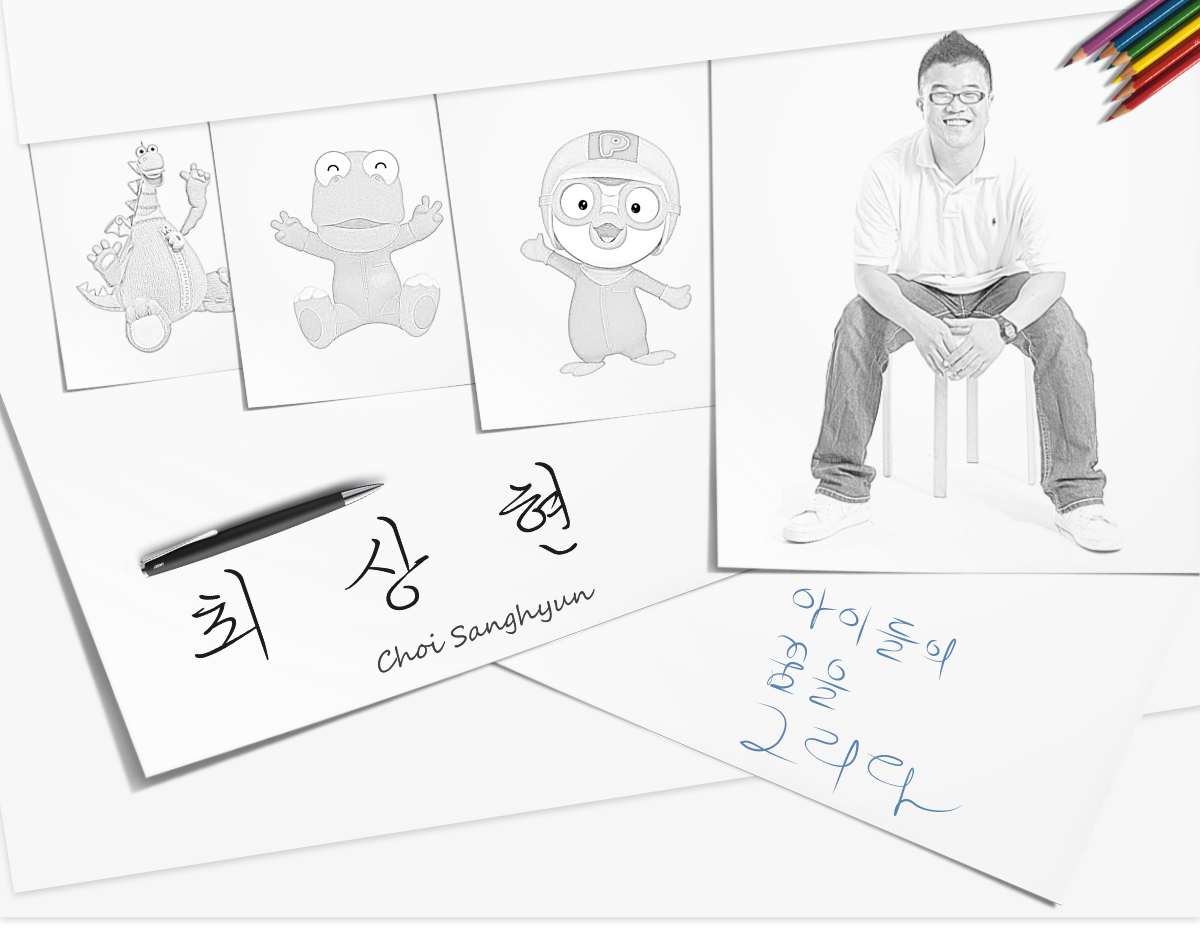 P
최 상 현
Choi Sanghyun
아이들의
꿈을
그리다